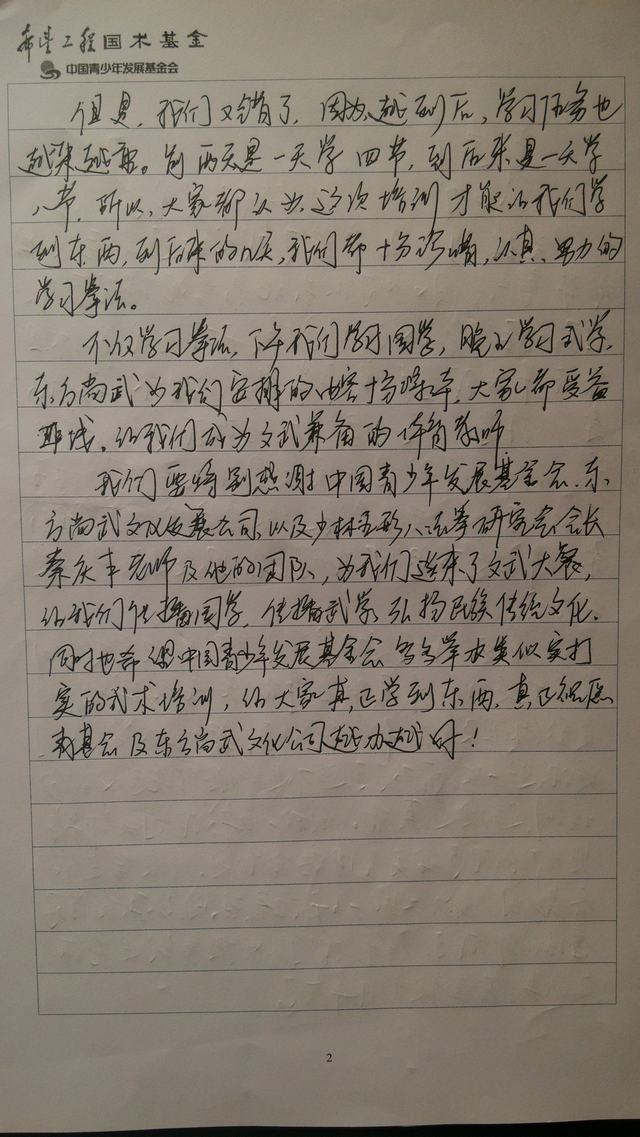 希望工程国术基金
中国青少年发展基金会
但是,我们又错了,因为越到后,学习任务也
越来越重。前两天是一天学四节,到后来是一天学
八节,所以,大家都认为这次培训才能让我们学
到东西,到后来的几天,我们都十分珍惜,认真、努力的
学习拳法。
不仅学习拳法,下午我们学习国学,晚上学习武学,
东方尚武为我们安排的内容十分丰,大家都受益
匪浅,让我们成为文武兼备的体育教师
我们要特别感谢中国青少年发展基金会、东
方尚武文化发展公司以及少林五形八法拳研究会会长
秦庆丰老师及他的团队,为我们送来了文武大餐,
给我们传播国学,传播武学,弘扬民族传统文化,
同时也希望中国青少年发展基金会多多举办类似实打
实的武术培训,让大家真正学到东西,真正祝愿
青基会及东方尚武文化公司越办越好!
2